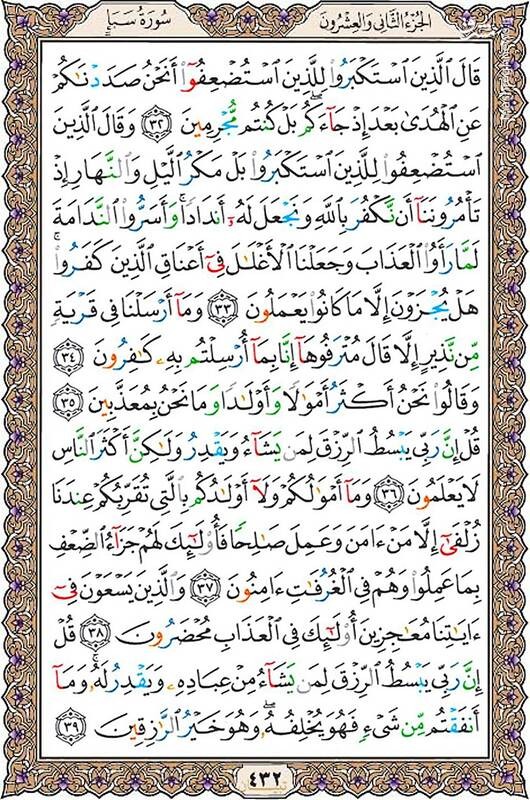 الجزء الثاني والعشرون
سورة سبإ
قَالَ ٱلَّذِينَ ٱسۡتَكۡبَرُواْ لِلَّذِينَ ٱسۡتُضۡعِفُوٓاْ أَنَحۡنُ صَدَدۡنَٰكُمۡ
عَنِ ٱلۡهُدَىٰ بَعۡدَ إِذۡ جَآءَكُمۖ بَلۡ كُنتُم مُّجۡرِمِينَ ٣٢ وَقَالَ ٱلَّذِينَ
ٱسۡتُضۡعِفُواْ لِلَّذِينَ ٱسۡتَكۡبَرُواْ بَلۡ مَكۡرُ ٱلَّيۡلِ وَٱلنَّهَارِ إِذۡ
تَأۡمُرُونَنَآ أَن نَّكۡفُرَ بِٱللَّهِ وَنَجۡعَلَ لَهُۥٓ أَندَادٗاۚ وَأَسَرُّواْ ٱلنَّدَامَةَ
لَمَّا رَأَوُاْ ٱلۡعَذَابَ وَجَعَلۡنَا ٱلۡأَغۡلَٰلَ فِيٓ أَعۡنَاقِ ٱلَّذِينَ كَفَرُواْۖ
هَلۡ يُجۡزَوۡنَ إِلَّا مَا كَانُواْ يَعۡمَلُونَ ٣٣ وَمَآ أَرۡسَلۡنَا فِي قَرۡيَةٖ
مِّن نَّذِيرٍ إِلَّا قَالَ مُتۡرَفُوهَآ إِنَّا بِمَآ أُرۡسِلۡتُم بِهِۦ كَٰفِرُونَ ٣٤
وَقَالُواْ نَحۡنُ أَكۡثَرُ أَمۡوَٰلٗا وَأَوۡلَٰدٗا وَمَا نَحۡنُ بِمُعَذَّبِينَ ٣٥
قُلۡ إِنَّ رَبِّي يَبۡسُطُ ٱلرِّزۡقَ لِمَن يَشَآءُ وَيَقۡدِرُ وَلَٰكِنَّ أَكۡثَرَ ٱلنَّاسِ
لَا يَعۡلَمُونَ ٣٦ وَمَآ أَمۡوَٰلُكُمۡ وَلَآ أَوۡلَٰدُكُم بِٱلَّتِي تُقَرِّبُكُمۡ عِندَنَا
زُلۡفَىٰٓ إِلَّا مَنۡ ءَامَنَ وَعَمِلَ صَٰلِحٗا فَأُوْلَٰٓئِكَ لَهُمۡ جَزَآءُ ٱلضِّعۡفِ
بِمَا عَمِلُواْ وَهُمۡ فِي ٱلۡغُرُفَٰتِ ءَامِنُونَ ٣٧ وَٱلَّذِينَ يَسۡعَوۡنَ فِيٓ
ءَايَٰتِنَا مُعَٰجِزِينَ أُوْلَٰٓئِكَ فِي ٱلۡعَذَابِ مُحۡضَرُونَ ٣٨ قُلۡ
إِنَّ رَبِّي يَبۡسُطُ ٱلرِّزۡقَ لِمَن يَشَآءُ مِنۡ عِبَادِهِۦ وَيَقۡدِرُ لَهُۥۚ وَمَآ
أَنفَقۡتُم مِّن شَيۡءٖ فَهُوَ يُخۡلِفُهُۥۖ وَهُوَ خَيۡرُ ٱلرَّٰزِقِينَ ٣٩
٤٣٢